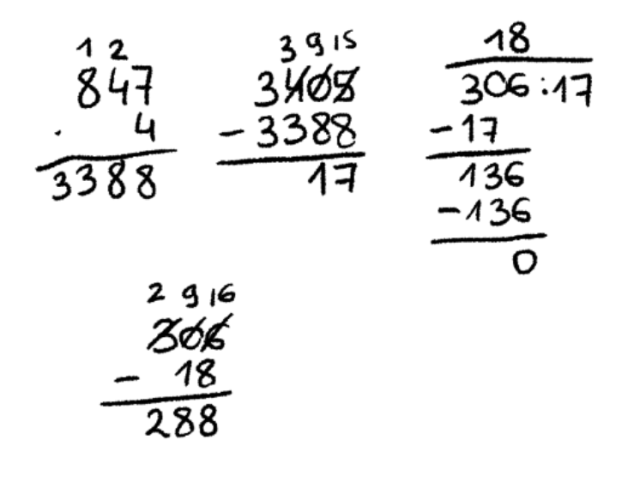 1 2
847
· 4
3388
3 9 15
3405
-3388
17
18
306:17
-17
136
-136
0
2 9 16
306
- 18
288